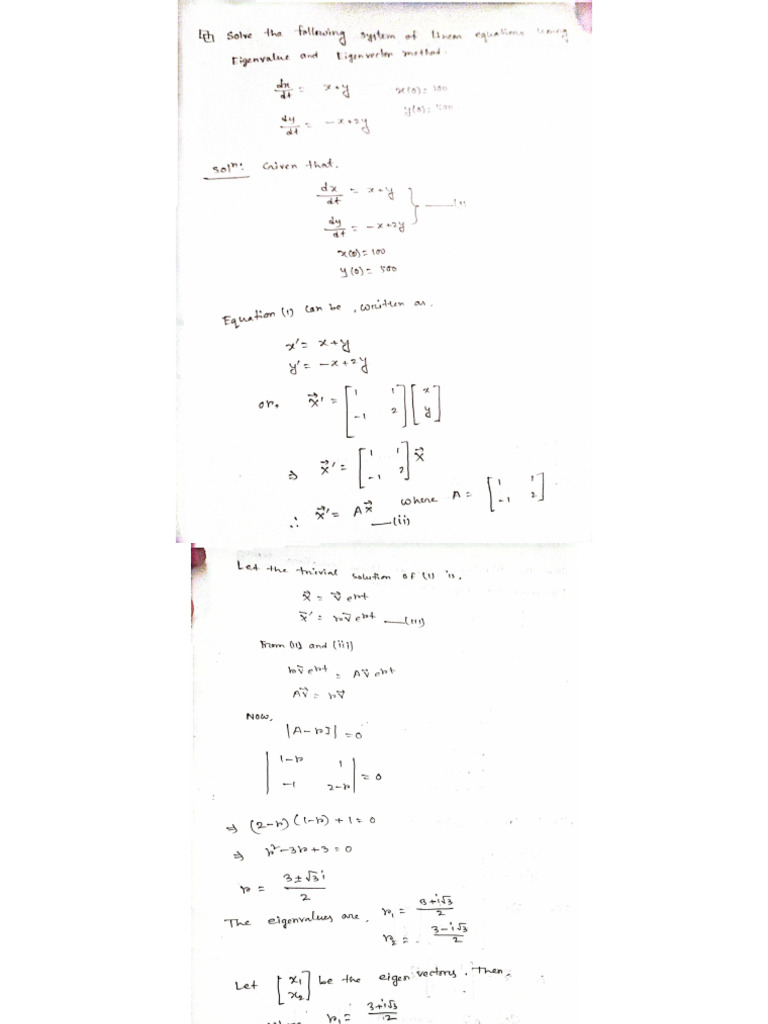 Solve the following system of linear equations using
Eigenvalue and Eigenvector method.
dx/dt = x+y x(0)=100
dy/dt = -x+2y y(0)=500
Solⁿ: Given that,
dx/dt = x+y
dy/dt = -x+2y } —(1)
x(0)=100
y(0)=500
Equation (1) can be, written as,
x' = x+y
y' = -x+2y
or, x⃗' = [1 1; -1 2] [x; y]
⇒ x⃗' = [1 1; -1 2] x⃗
∴ x⃗' = Ax⃗ where A = [1 1; -1 2]
—(ii)
Let the trivial solution of (1) is,
x⃗ = v⃗ e^{rt}
x⃗' = rv⃗ e^{rt} —(iii)
From (ii) and (iii)
rv⃗ e^{rt} = Av⃗ e^{rt}
Av⃗ = rv⃗
Now,
|A-rI| = 0
|1-r 1; -1 2-r| = 0
⇒ (2-r)(1-r)+1=0
⇒ r²-3r+3=0
r = (3±√3i)/2
The eigenvalues are, r₁ = (3+i√3)/2
r₂ = (3-i√3)/2
Let [x₁; x₂] be the eigen vectors. Then,
r₁ = (3+i√3)/2